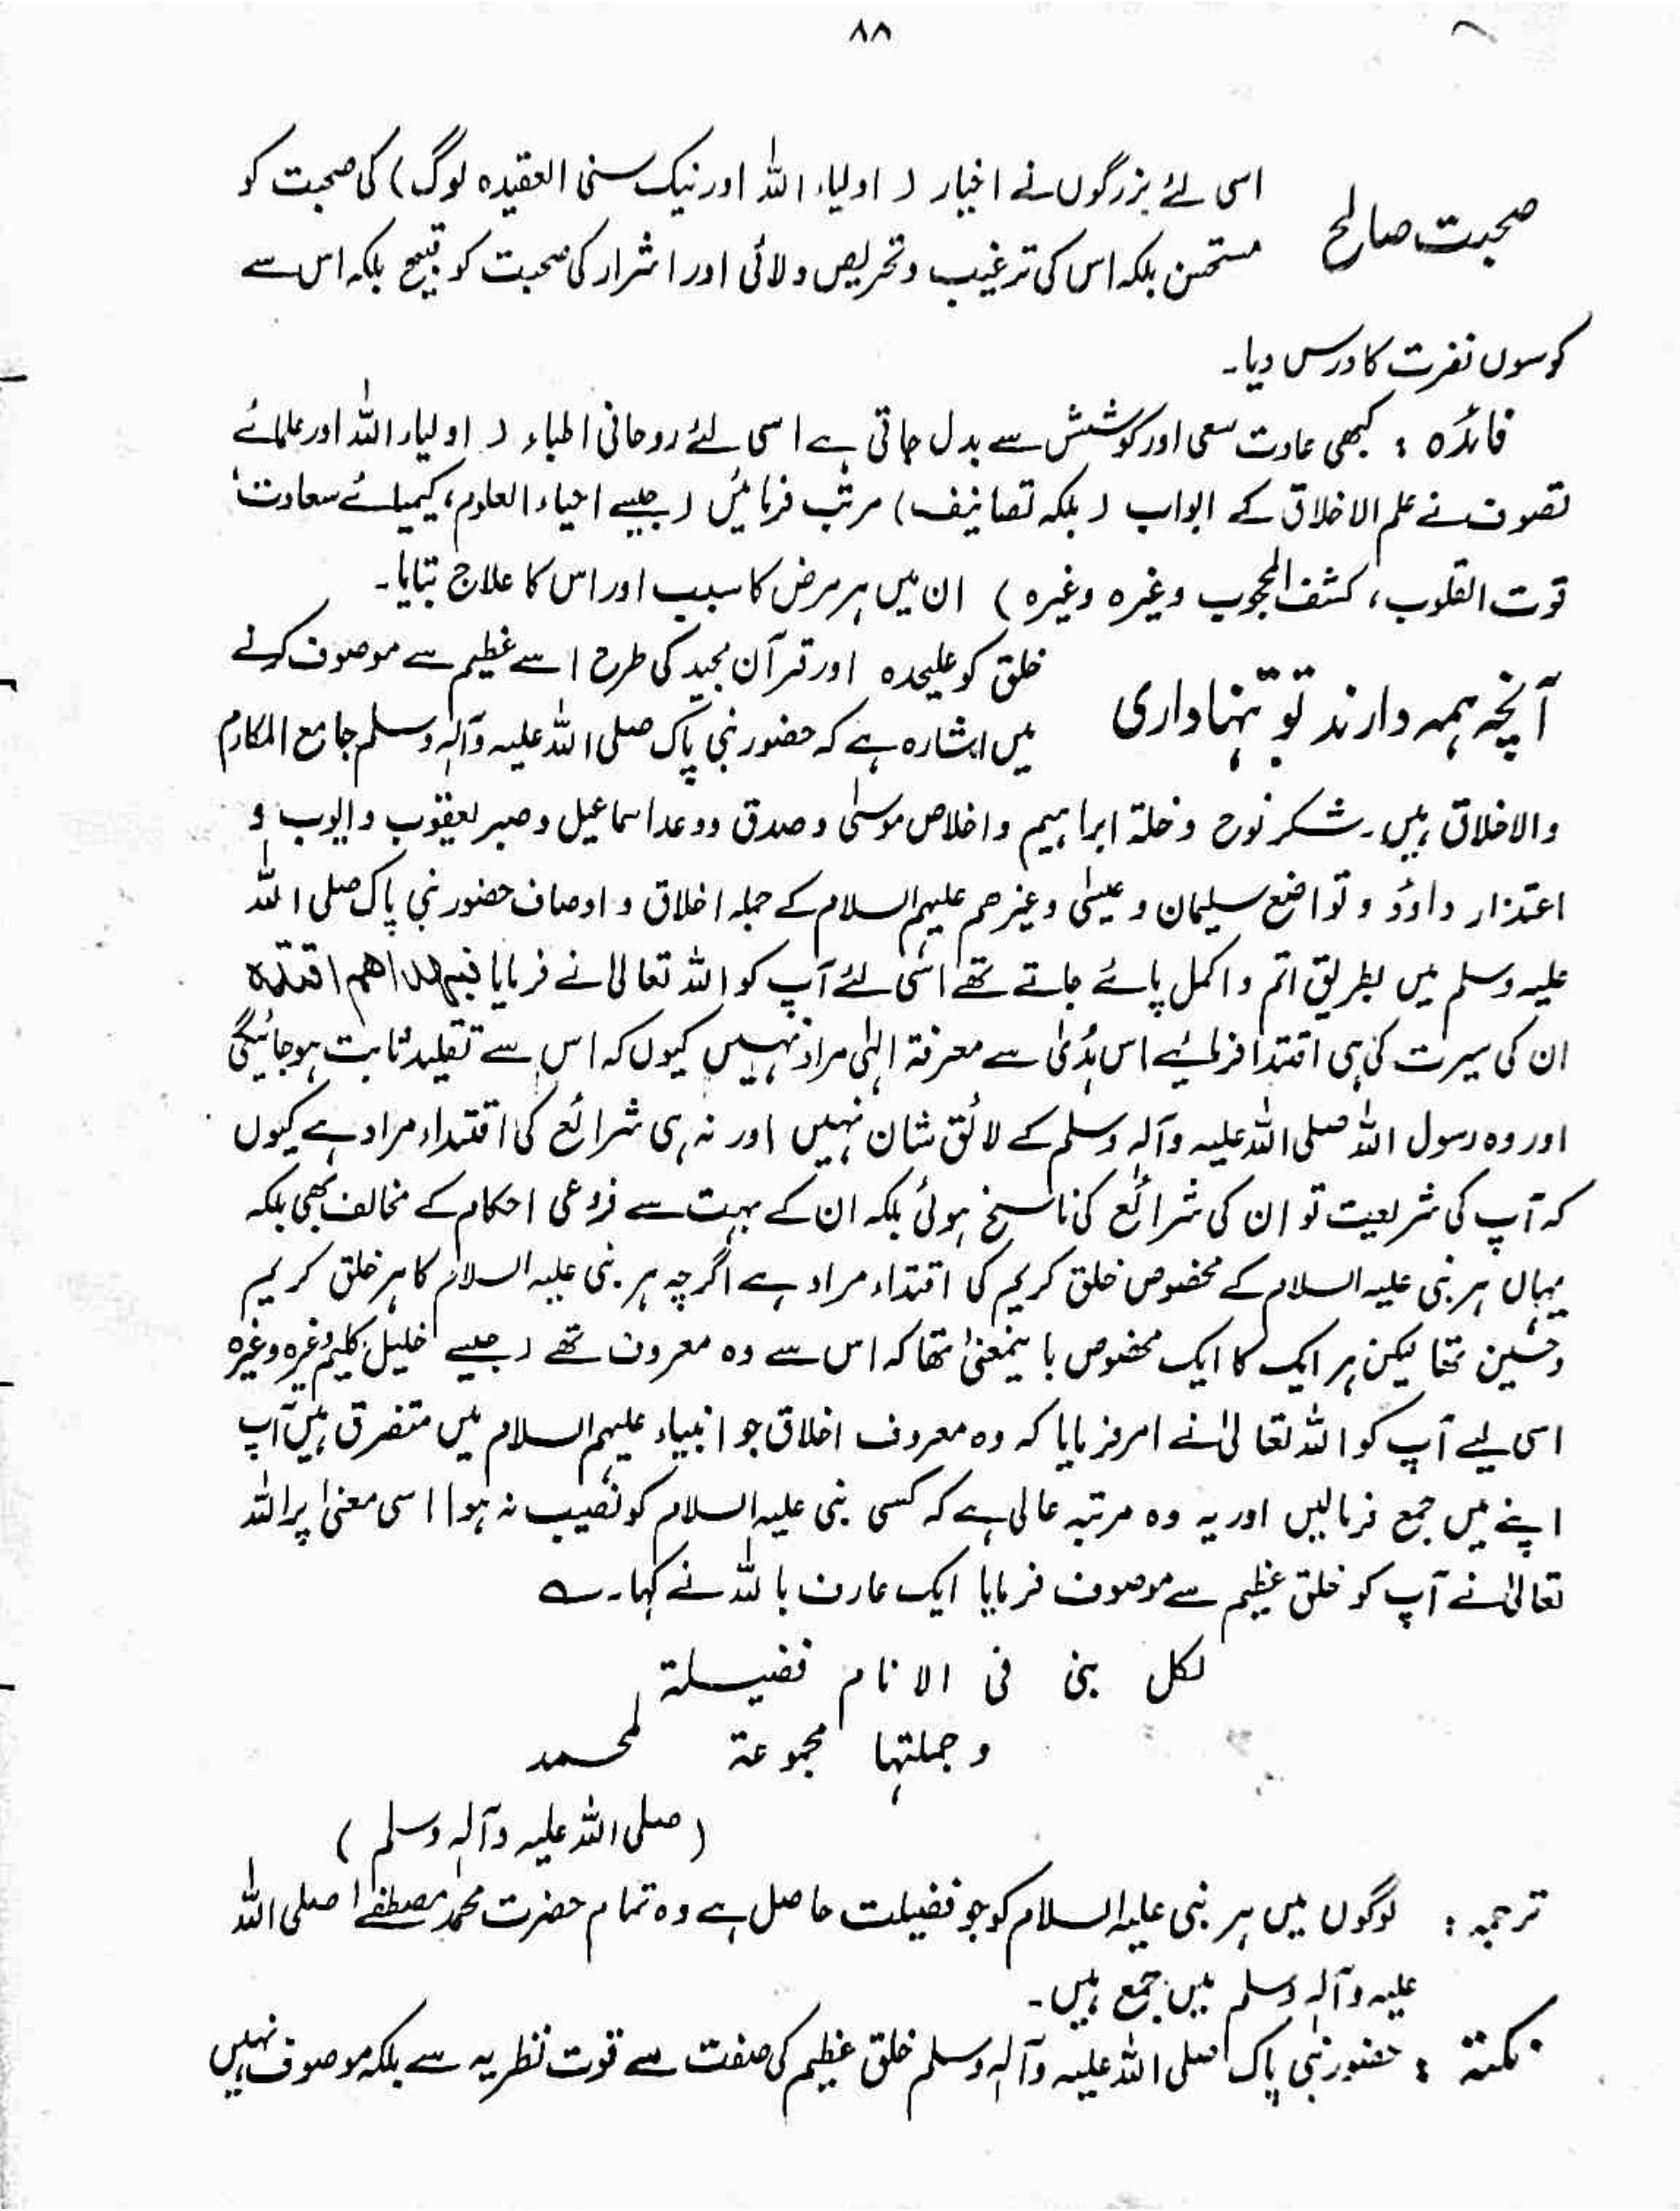 ۸۸
صحبت صالح
اسی لئے بزرگوں نے اخیار ( اولیاء اللہ اور نیک سنی العقیدہ لوگ) کی صحبت کو
مستحسن بلکہ اس کی ترغیب و تحریص دلائی اور اشرار کی صحبت کو قبیح بلکہ اس سے
کوسوں نفرت کا درس دیا۔
فائدہ : کبھی عادت سعی اور کوشش سے بدل جاتی ہے اسی لئے روحانی اطباء ( اولیاء اللہ اور علمائے
تصوف نے علم الاخلاق کے ابواب ( بلکہ تصانیف) مرتب فرمائیں (جیسے احیاء العلوم، کیمیائے سعادت،
قوت القلوب، کشف المحجوب وغیرہ وغیرہ ) ان میں ہر مرض کا سبب اور اس کا علاج بتایا۔
آنچہ ہمہ دارند تو تنہا داری
خلق کو علیحدہ اور قرآن مجید کی طرح اسے عظیم سے موصوف کرنے
میں اشارہ ہے کہ حضور نبی پاک صلی اللہ علیہ وآلہٖ وسلم جامع المکارم
والاخلاق ہیں۔ شکر نوح و خلۃ ابراہیم و اخلاص موسیٰ و صدق ووعد اسماعیل و صبر یعقوب و ایوب و
اعتذار داؤد و تواضع سلیمان و عیسیٰ وغیرھم علیہم السلام کے جملہ اخلاق و اوصاف حضور نبی پاک صلی اللہ
علیہ وسلم میں بطریق اتم و اکمل پائے جاتے تھے اسی لئے آپ کو اللہ تعالیٰ نے فرمایا فبھداھم اقتدہ
ان کی سیرت کی ہی اقتدا فرمائیے اس ہُدیٰ سے معرفۃ الہٰی مراد نہیں کیوں کہ اس سے تقلید ثابت ہوجائیگی
اور وہ رسول اللہ صلی اللہ علیہ وآلہٖ وسلم کے لائق شان نہیں اور نہ ہی شرائع کی اقتداء مراد ہے کیوں
کہ آپ کی شریعت تو ان کی شرائع کی ناسخ ہوئی بلکہ ان کے بہت سے فروعی احکام کے مخالف بھی بلکہ
یہاں ہر نبی علیہ السلام کے مخصوص خلق کریم کی اقتداء مراد ہے اگرچہ ہر نبی علیہ السلام کا ہر خلق کریم
و حسین تھا لیکن ہر ایک کا ایک مخصوص باینمعنیٰ تھا کہ اس سے وہ معروف تھے (جیسے خلیل کلیم وغیرہ وغیرہ
اسی لیے آپ کو اللہ تعالیٰ نے امر فرمایا کہ وہ معروف اخلاق جو انبیاء علیہم السلام میں متفرق ہیں آپ
اپنے میں جمع فرمالیں اور یہ وہ مرتبہ عالی ہے کہ کسی نبی علیہ السلام کو نصیب نہ ہوا اسی معنیٰ پر اللہ
تعالیٰ نے آپ کو خلق عظیم سے موصوف فرمایا ایک عارف باللہ نے کہا۔ ؎
لکل نبی فی الانام فضیلۃ
و جملتہا مجموعۃ لمحمد
(صلی اللہ علیہ وآلہٖ وسلم )
ترجمہ : لوگوں میں ہر نبی علیہ السلام کو جو فضیلت حاصل ہے وہ تمام حضرت محمد مصطفےٰ صلی اللہ
علیہ وآلہٖ وسلم میں جمع ہیں۔
نکتہ : حضور نبی پاک صلی اللہ علیہ وآلہٖ وسلم خلق عظیم کی صفت سے قوت نظریہ سے بلکہ موصوف نہیں